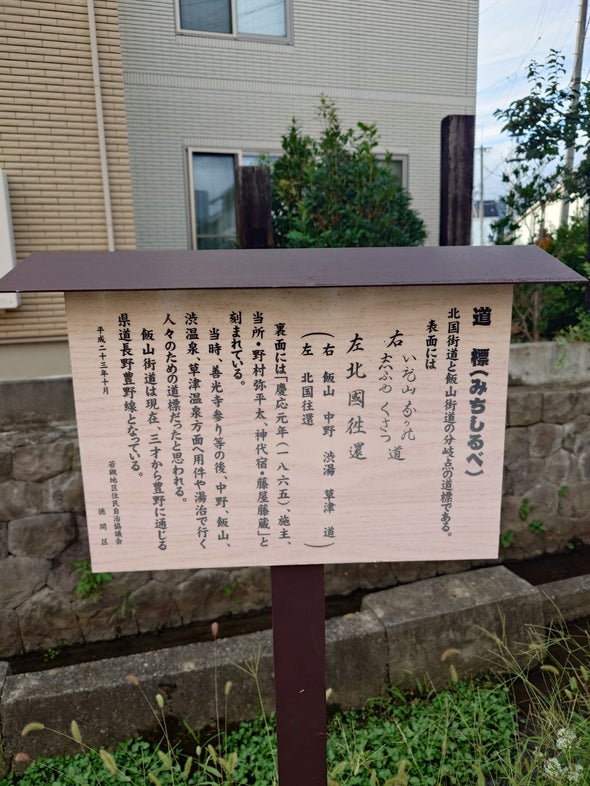 道標(みちしるべ)
北国街道と飯山街道の分岐点の道標である。
表面には
右 いひ山 なかの 志ぶゆ くさつ 道
左北國徃還
(右 飯山 中野 渋湯 草津 道)
(左 北国往還)
裏面には「慶応元年(一八六五)、施主、
当所・野村弥平太、神代宿・藤屋藤蔵」と
刻まれている。
当時、善光寺参り等の後、中野、飯山、
渋温泉、草津温泉方面へ用件や湯治で行く
人々のための道標だったと思われる。
飯山街道は現在、三才から豊野に通じる
県道長野豊野線となっている。
平成二十三年十月
若槻地区住民自治協議会
徳間区